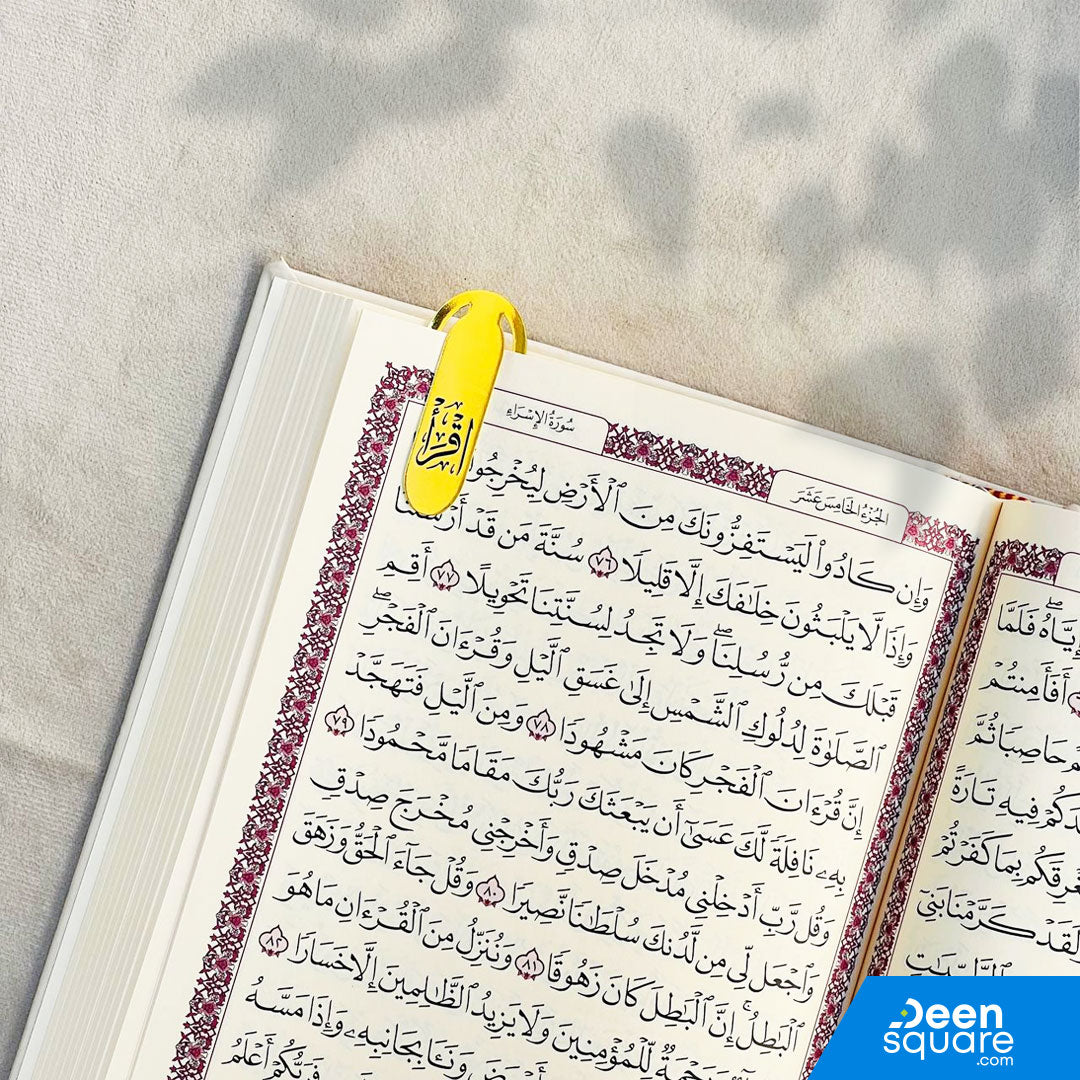 اقرأ
سُورَةُ الإِسْرَاءِ
الجُزْءُ الخَامِسَ عَشَرَ
وَإِن كَادُوا۟ لَيَسْتَفِزُّونَكَ مِنَ ٱلْأَرْضِ لِيُخْرِجُو
وَإِذًا لَّا يَلْبَثُونَ خِلَٰفَكَ إِلَّا قَلِيلًا ٧٦ سُنَّةَ مَن قَدْ
قَبْلَكَ مِن رُّسُلِنَا ۖ وَلَا تَجِدُ لِسُنَّتِنَا تَحْوِيلًا ٧٧ أَقِمِ
ٱلصَّلَوٰةَ لِدُلُوكِ ٱلشَّمْسِ إِلَىٰ غَسَقِ ٱلَّيْلِ وَقُرْءَانَ ٱلْفَجْرِ ۖ
إِنَّ قُرْءَانَ ٱلْفَجْرِ كَانَ مَشْهُودًا ٧٨ وَمِنَ ٱلَّيْلِ فَتَهَجَّدْ
بِهِۦ نَافِلَةً لَّكَ عَسَىٰٓ أَن يَبْعَثَكَ رَبُّكَ مَقَامًا مَّحْمُودًا ٧٩
وَقُل رَّبِّ أَدْخِلْنِى مُدْخَلَ صِدْقٍ وَأَخْرِجْنِى مُخْرَجَ صِدْقٍ
وَٱجْعَل لِّى مِن لَّدُنكَ سُلْطَٰنًا نَّصِيرًا ٨٠ وَقُلْ جَآءَ ٱلْحَقُّ وَزَهَقَ
ٱلْبَٰطِلُ ۚ إِنَّ ٱلْبَٰطِلَ كَانَ زَهُوقًا ٨١ وَنُنَزِّلُ مِنَ ٱلْقُرْءَانِ مَا هُوَ
وَرَحْمَةٌ لِّلْمُؤْمِنِينَ وَلَا يَزِيدُ ٱلظَّٰلِمِينَ إِلَّا خَسَارًا ٨٢
وَنَـَٔا بِجَانِبِهِۦ وَإِذَا مَسَّهُ
فَرَبُّكُمْ أَعْلَمُ
إِيَّاهُ ۖ فَلَمَّا
أَفَأَمِنتُمْ
حَاصِبًا ثُمَّ
فِيهِ تَارَةً
بِمَا كَفَرْتُمْ
وَلَقَدْ كَرَّمْنَا بَنِىٓ
Deen
square
.com